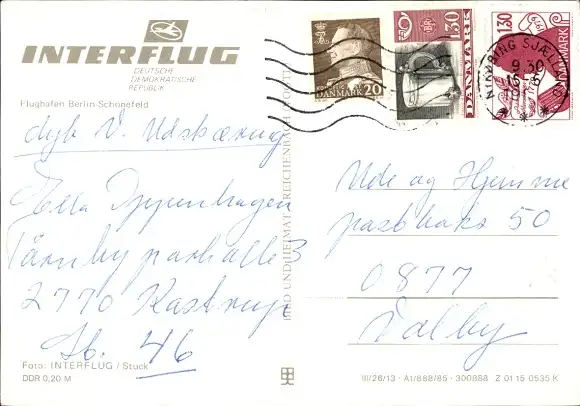 INTERFLUG
DEUTSCHE
DEMOKRATISCHE
REPUBLIK
Flughafen Berlin-Schönefeld
dyb V. Udskæring
Ella Oppenhagen
Tårnby parkalle 3
2770 Kastrup
Lb. 46
Foto: INTERFLUG / Stuck
DDR 0,20 M
BILD UND HEIMAT REICHENBACH (VOGTL)
DANMARK 20
1.30
DANMARK
1.30
DANMARK
NYKØBING SJÆLL
9.30
Ude og Hjemme
postboks 50
0877
Valby
III/26/13 · A1/882/85 · 300888 Z 01 15 0535 K